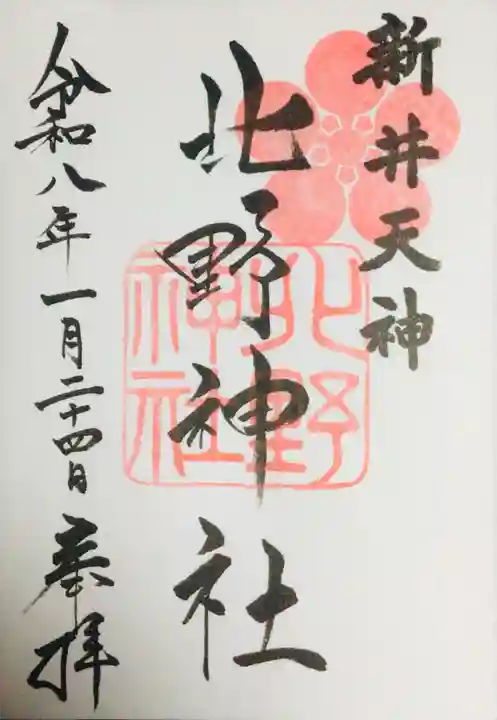 新井天神
北野神社
北野神社
令和八年一月二十四日奉拝